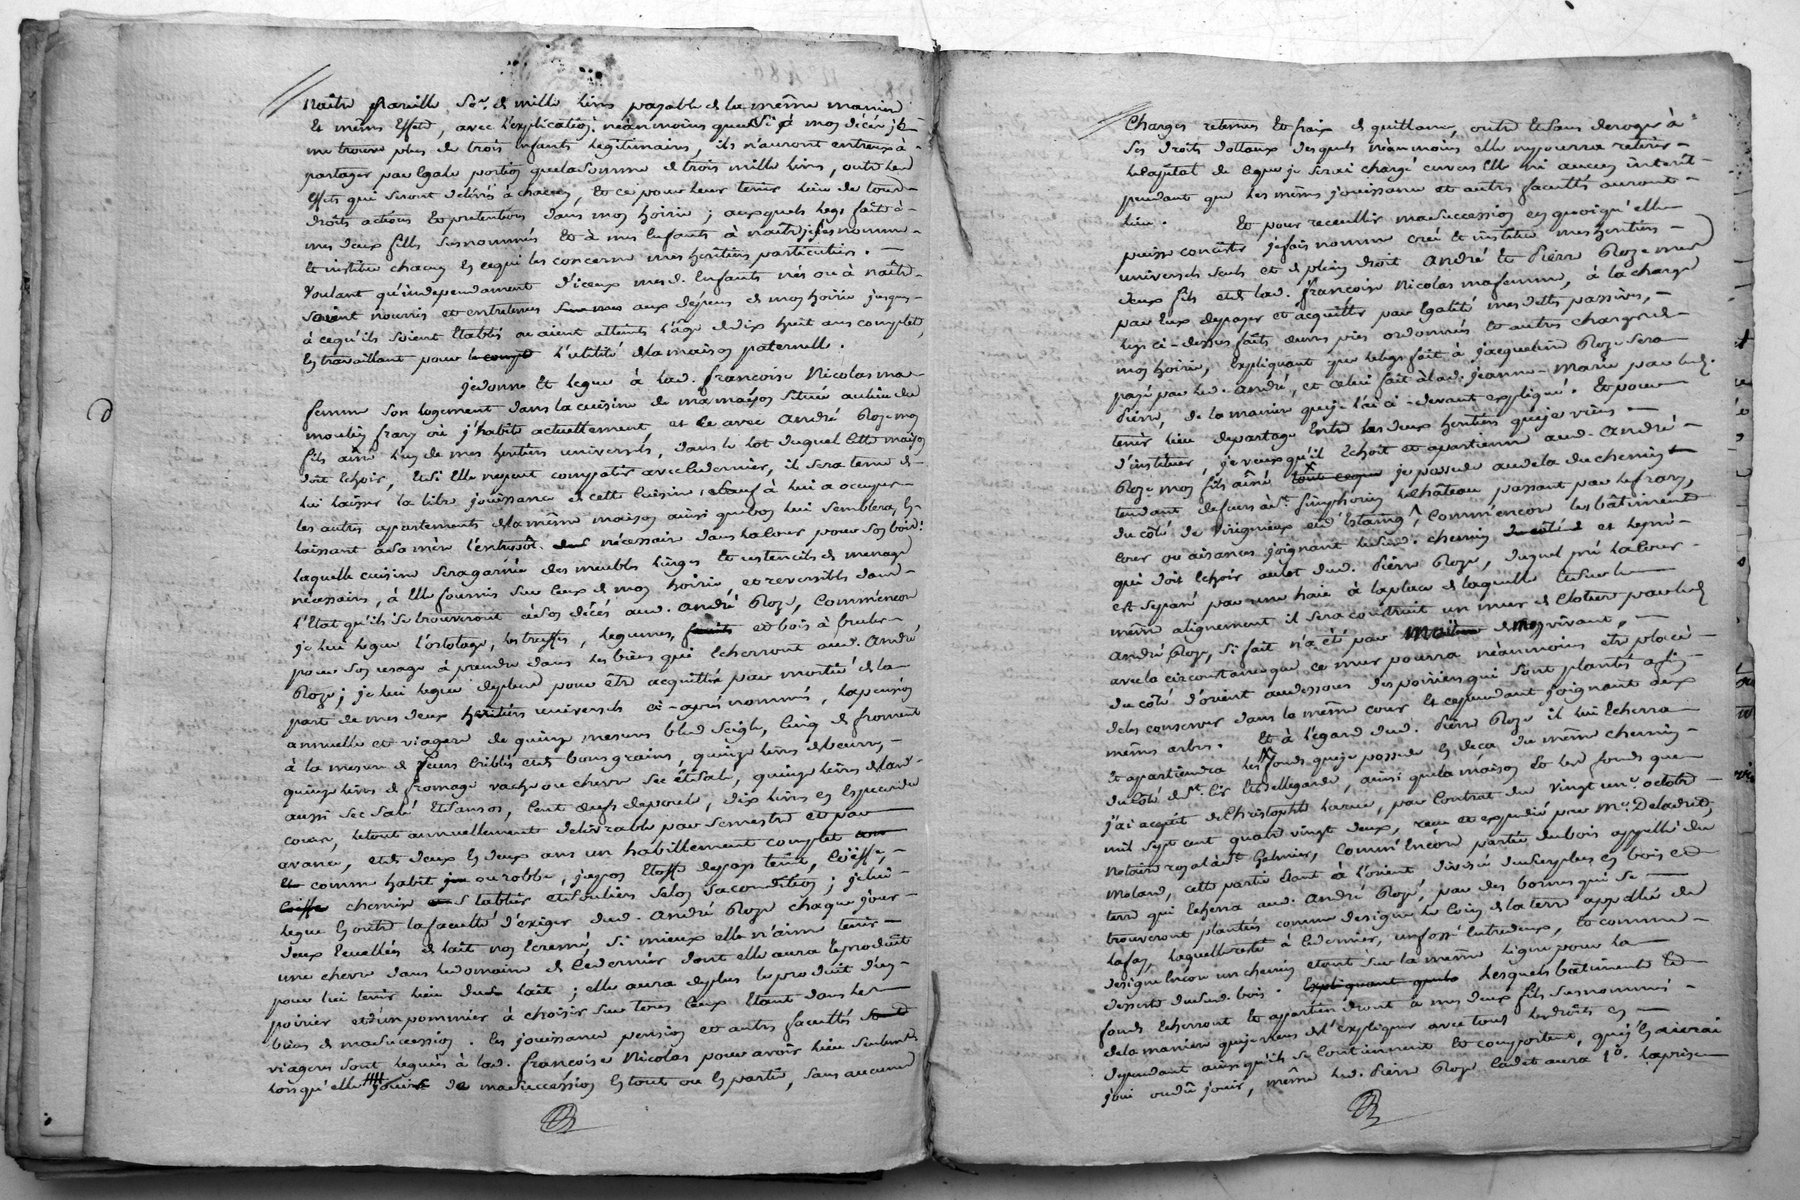 naître pareille so.e de mille livres payable de la même maniere
et mêmes effets, avec l'explication néanmoins que si à mon décès je
me trouve plus de trois enfants legitimaires, ils n'auront entreux à
partager par egale portion que la somme de trois mille livres, outre les
effets qui seront délivrés à chacun, et ce pour leur tenir lieu de tous
droits actions et pretentions dans mon hoirie ; auxquels legs fait à
mes deux fills susnommés et à mes enfants à naître je les nomme
et institue chacun en ce qui les concerne mes héritiers particuliers.
Voulant qu'independament d'iceux mesd. enfants nés ou à naître
soient nourris et entretenus aux depens de mon hoirie jusques
à ce qu'ils soient etablis ou aient atteints l'âge de dix huit ans complet,
en travaillant pour le compte l'utilité de la maison paternelle.
je donne et legue à lad. françoise Nicolas ma
femme son logement dans la cuisine de ma maison située au lieu du
moulin frary où j'habite actuellement et ce avec André Roze mon
fils ainé l'un de mes heritiers universels, dans le lot duquel cette maison
doit echoir, et si elle ne peut compatir avec ce dernier, il sera tenu de
lui laisser la libre jouissance de cette cuisine, sauf à lui a occuper
les autres appartements de la même maison ainsi que bon lui semblera, en
laissant à sa mère l'entrepôt nécessaire dans la cour pour son bois :
laquelle cuisine sera garnie des meubles linges et ustencils de menage
nécessaires, à elle fournis sur ceux de mon hoirie et reversibles dans
l'etat qu'ils se trouveront à son décés aud. André Roze, comm'encor
je lui legue l'ortolage, les truffes, legumes, fruits et bois à bruler
pour son usage à prendre dans les biens qui echerront aud. André
Roze ; je lui legue deplus pour être acquittée par moitié de la
part de mes deux heritiers universels ci-après nommés, la pension
annuelle et viagere de quinze mesures bled seigle, cinq de froment
à la mesure de feurs criblés et de bons grains, quinze livres de beurre,
quinze livres de fromage vache ou chevre sec et salé, quinze livres de lard
aussi sec salé et sans os, cent oeufs de poule, dix livres en especes de
cours, le tout annuellement délivrable par semestre et par
avance, et de deux en deux ans un habillement complet
comme habit ou robbe, jupon etoffe de pays teint, coëffe,
coëffe chemise tablier et souliers selon sa condition ; je lui
legue en outre la faculté d'exiger dud. André Roze chaque jour
deux ecuellées de lait non ecremé, si mieux elle n'aime tenir
une chevre dans le domaine de ce dernier dont elle aura le produit
pour lui tenir lieu dud. lait ; elle aura deplus le produit d'un
poirier et d'un pommier à choisir sur tous ceux etant dans les
biens de ma succession. les jouissance pension et autres facultés
viageres sont leguées à lad. françoise Nicolas pour avoir lieu seulement
lorsqu'elle de ma succession en tout ou en partie, sans aucune
charges retenues et fraix de quittance, outre et sans deroger à
ses droits dottaux desquels néanmoins elle ne pourra retirer
le capital de ce que je serai chargé envers elle ni aucun interêt
pendant que les mêmes jouissance et autres facultés auront
lieu. Et pour recueillir ma succession en quoi qu'elle
puisse consister je fais nomme créé et institue mes heritiers
universels seuls et de plein droit André et Pierre Roze mes
deux fils et de lad. françoise Nicolas ma femme, à la charge
par eux de payer et acquitter par egalité mes dettes passives,
legs ci-dessus faits, oeuvres pies ordonnées et autres charges de
mon hoirie, expliquant que le legs fait à jacqueline Roze sera
payé par led. André, et celui fait à lad. jeanne-Marie par led.
Pierre, de la maniere que je l'ai ci-devant expliqué. Et pour
tenir lieu de partage entre les deux heritiers que je viens
d'instituer, je veux qu'il echoit et apartienne aud. André
Roze mon fils ainé tout ce que je possede audela du chemin
tendant de feurs à St. Simphorien le château passant par le frary,
du côté de Virigneux et d'Estaing, comm'encor les bâtiments
cour ou aisances joignant led. chemin et le pré
qui doit echoir au lot dud. Pierre Roze, duquel pré la cour
est separé par une haie à la place de laquelle et sur le
même alignement il sera construit un mur de cloture par led.
André Roze, si fait n'a été par moi de mon vivant,
avec la circonstance que ce mur pourra néanmoins être placé
du côté d'orient au dessous des poiriers qui sont plantés afin
de les conserver dans la même cour et cependant joignant aux
mêmes arbres. Et à l'égard dud. Pierre Roze il lui echerra
et apartiendra les fonds que je possede en deça du même chemin
du côté de St. Cir et Bellegarde, ainsi que la maison et les fonds que
j'ai acquit de Christophle Larue, par contrat du vingt un octobre
mil sept cent quatre vingt deux, recu et expedié par Mr. Deladret,
Notaire royal à St Galmier, comm'encor partie du bois appellé du
Molard, cette partie etant à l'orient, divisée du surplus en bois et
terre qui echerra aud. André Roze, par des bornes qui se
trouveront plantées comme designe le coin de la terre appellée de
lafay, laquelle reste à ce dernier, un fossé entredeux, et comme
designe encor un chemin etant sur la même ligne pour la
desserte dud. bois. Lesquels bâtiments et
fonds echerront et apartiendront à mes deux fils susnommés
de la maniere que je viens de l'expliquer avec tous les droits en
dependant ainsi qu'ils se contiennent et comportent, que j'en ai
joui ou dû jouir, même led. Pierre Roze cadet aura 1°. la prise